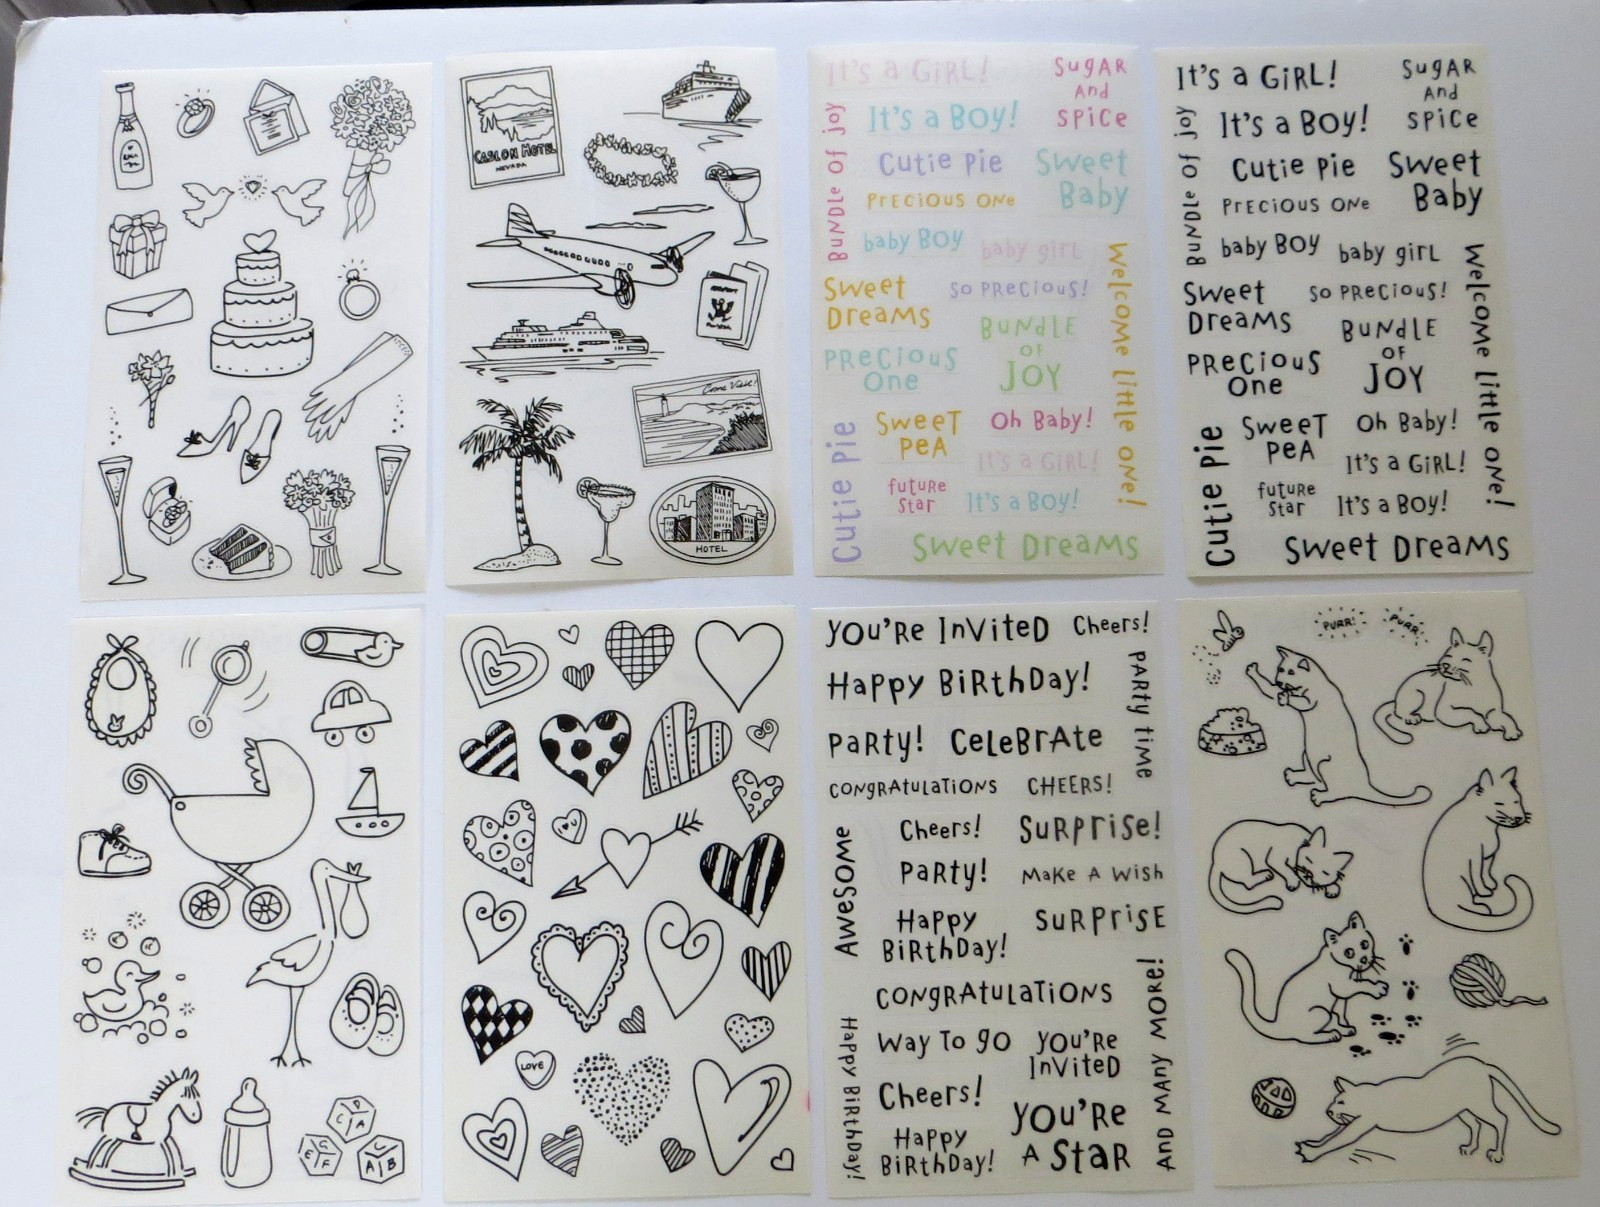 CASLON HOTEL
NEVADA
Come Visit!
HOTEL
It's a GiRL!
SugAR
And
SPiCe
BuNdLe Of joy
It's a BOY!
Cutie Pie
Sweet
Baby
PReCiOUS ONe
baby BOY
baby giRL
Welcome little one!
Sweet
DReaMS
SO PReCiOUS!
BuNdLE
OF
JOY
PReCiOUS
One
Cutie Pie
SweeT
PeA
Oh Baby!
It's a GiRL!
futuRe
StaR
It's a BOY!
Sweet DReaMS
It's a GiRL!
SugAR
And
SPiCe
BuNdLe Of joy
It's a BOY!
Cutie Pie
Sweet
Baby
PReCiOUS ONe
baby BOY
baby giRL
Welcome little one!
Sweet
DReaMS
SO PReCiOUS!
BuNdLE
OF
JOY
PReCiOUS
One
Cutie Pie
SweeT
PeA
Oh Baby!
It's a GiRL!
futuRe
StaR
It's a BOY!
Sweet DReaMS
C
D
A
C
E
F
A
B
LOVE
YOU'Re InViteD
Cheers!
HaPPy BiRthDay!
PARty time
PaRty!
CeLeBRAte
CONgRAtuLAtiONS
CHEERS!
AWeSOMe
Cheers!
SuRPRiSe!
PaRty!
MaKe A WiSh
HaPPy
BiRthDay!
SuRPRiSE
CONgRAtuLATiONS
AND MANY MORE!
HaPPy BiRthDay!
Way To gO
YOU'Re
InViteD
Cheers!
YOU'Re
A StaR
HaPPy
BiRthDay!
PURR!
PURR!